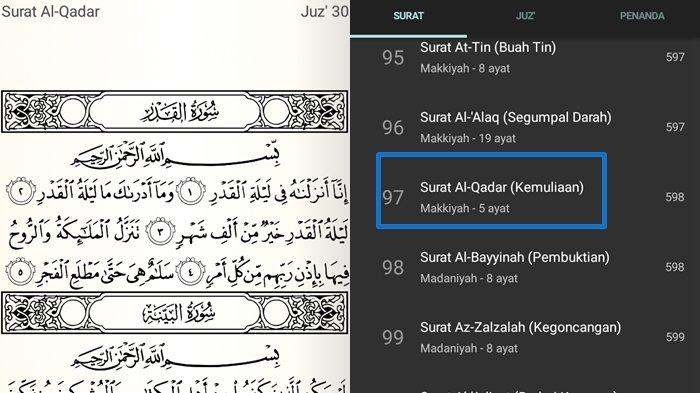 Surat Al-Qadar
Juz' 30
سُورَةُ الْقَدْرِ
بِسْمِ اللَّهِ الرَّحْمَٰنِ الرَّحِيمِ
إِنَّا أَنزَلْنَاهُ فِي لَيْلَةِ الْقَدْرِ ١ وَمَا أَدْرَاكَ مَا لَيْلَةُ الْقَدْرِ ٢
لَيْلَةُ الْقَدْرِ خَيْرٌ مِّنْ أَلْفِ شَهْرٍ ٣ تَنَزَّلُ الْمَلَائِكَةُ وَالرُّوحُ
فِيهَا بِإِذْنِ رَبِّهِم مِّن كُلِّ أَمْرٍ ٤ سَلَامٌ هِيَ حَتَّىٰ مَطْلَعِ الْفَجْرِ ٥
سُورَةُ الْبَيِّنَةِ
بِسْمِ اللَّهِ الرَّحْمَٰنِ الرَّحِيمِ
SURAT
JUZ'
PENANDA
95
Surat At-Tin (Buah Tin)
Makkiyah - 8 ayat
597
96
Surat Al-'Alaq (Segumpal Darah)
Makkiyah - 19 ayat
597
97
Surat Al-Qadar (Kemuliaan)
Makkiyah - 5 ayat
598
98
Surat Al-Bayyinah (Pembuktian)
Madaniyah - 8 ayat
598
99
Surat Az-Zalzalah (Kegoncangan)
Madaniyah - 8 ayat
599